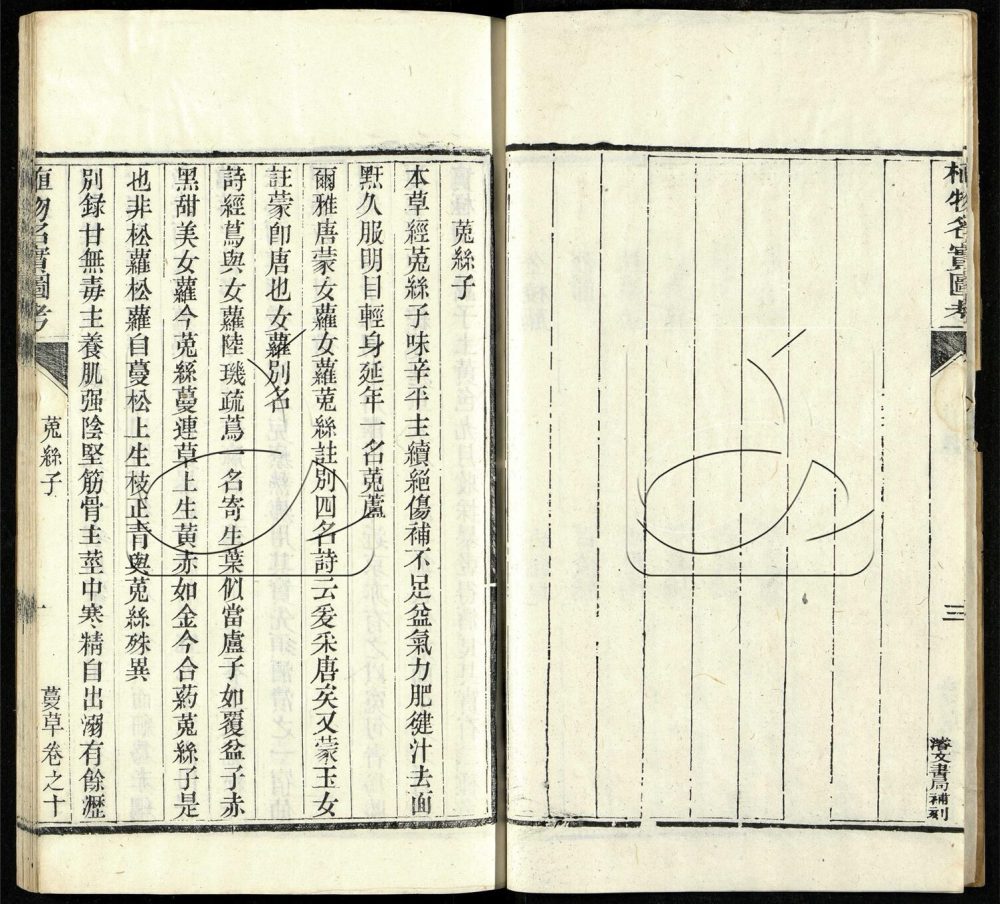 植物名實圖考
三
濬文書局補刻
菟絲子
本草經菟絲子味辛平主續絕傷補不足益氣力肥健汁去面
䵟久服明目輕身延年一名菟蘆
爾雅唐蒙女蘿女蘿菟絲註別四名詩云爰采唐矣又蒙玉女
註蒙卽唐也女蘿別名
詩經蔦與女蘿陸璣疏蔦一名寄生葉似當盧子如覆盆子赤
黑甜美女蘿今菟絲蔓連草上生黃赤如金今合藥菟絲子是
也非松蘿松蘿自蔓松上生枝正青與菟絲殊異
別錄甘無毒主養肌强陰堅筋骨主莖中寒精自出溺有餘瀝
植物名實圖考
菟絲子
一
蔓草卷之十